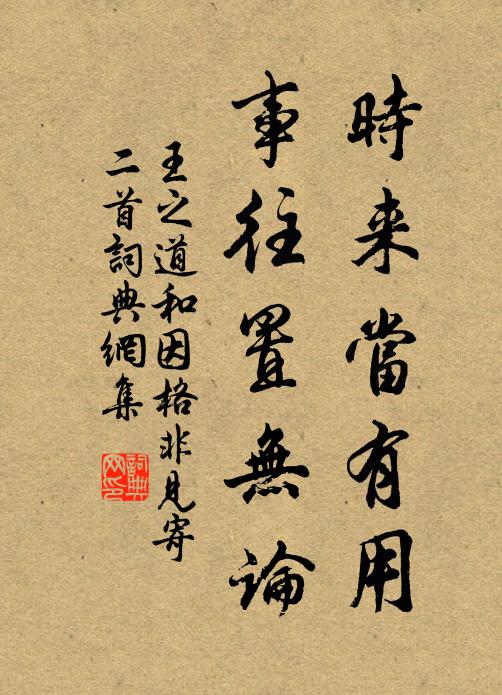 時来當有用
事往置無論
王之道和因格非見寄
二首詞典網集
詞典
网印